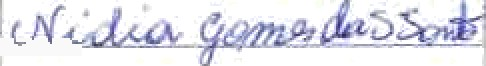 Nidia Gomes da S Santos